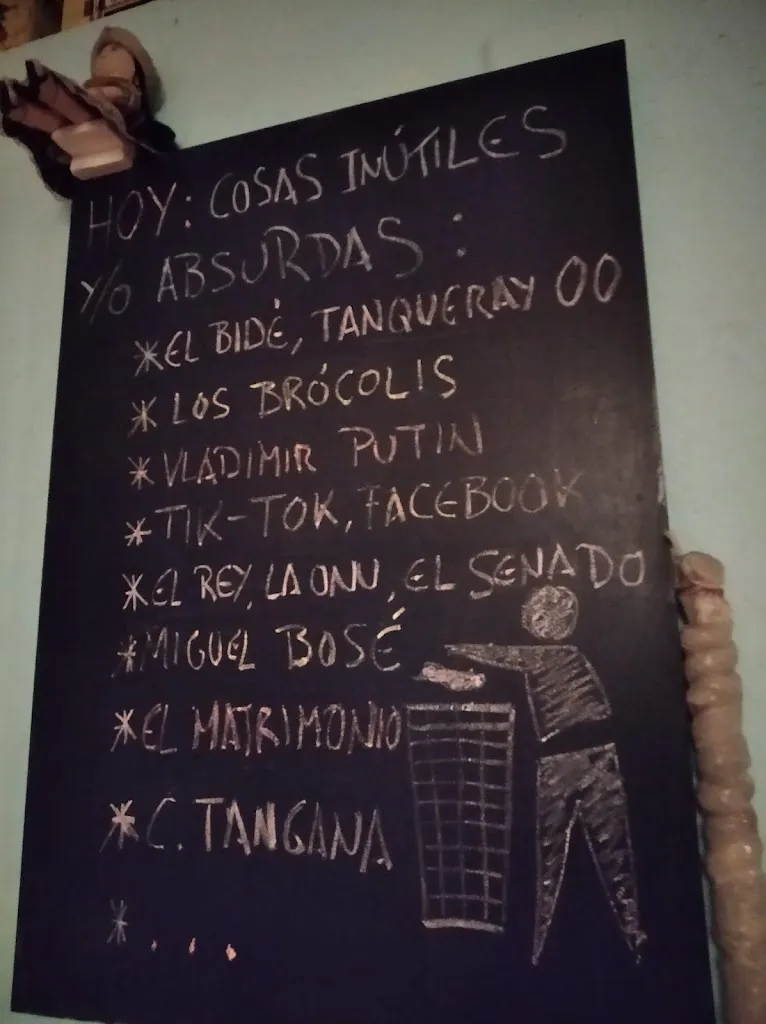 HOY: COSAS INÚTILES
Y/O ABSURDAS:
*EL BIDÉ, TANQUERAY 00
* LOS BRÓCOLIS
*VLADIMIR PUTIN
*TIK-TOK, FACEBOOK
*EL REY, LA ONU, EL SENADO
*MIGUEL BOSÉ
*EL MATRIMONIO
*C. TANGANA
* . . .